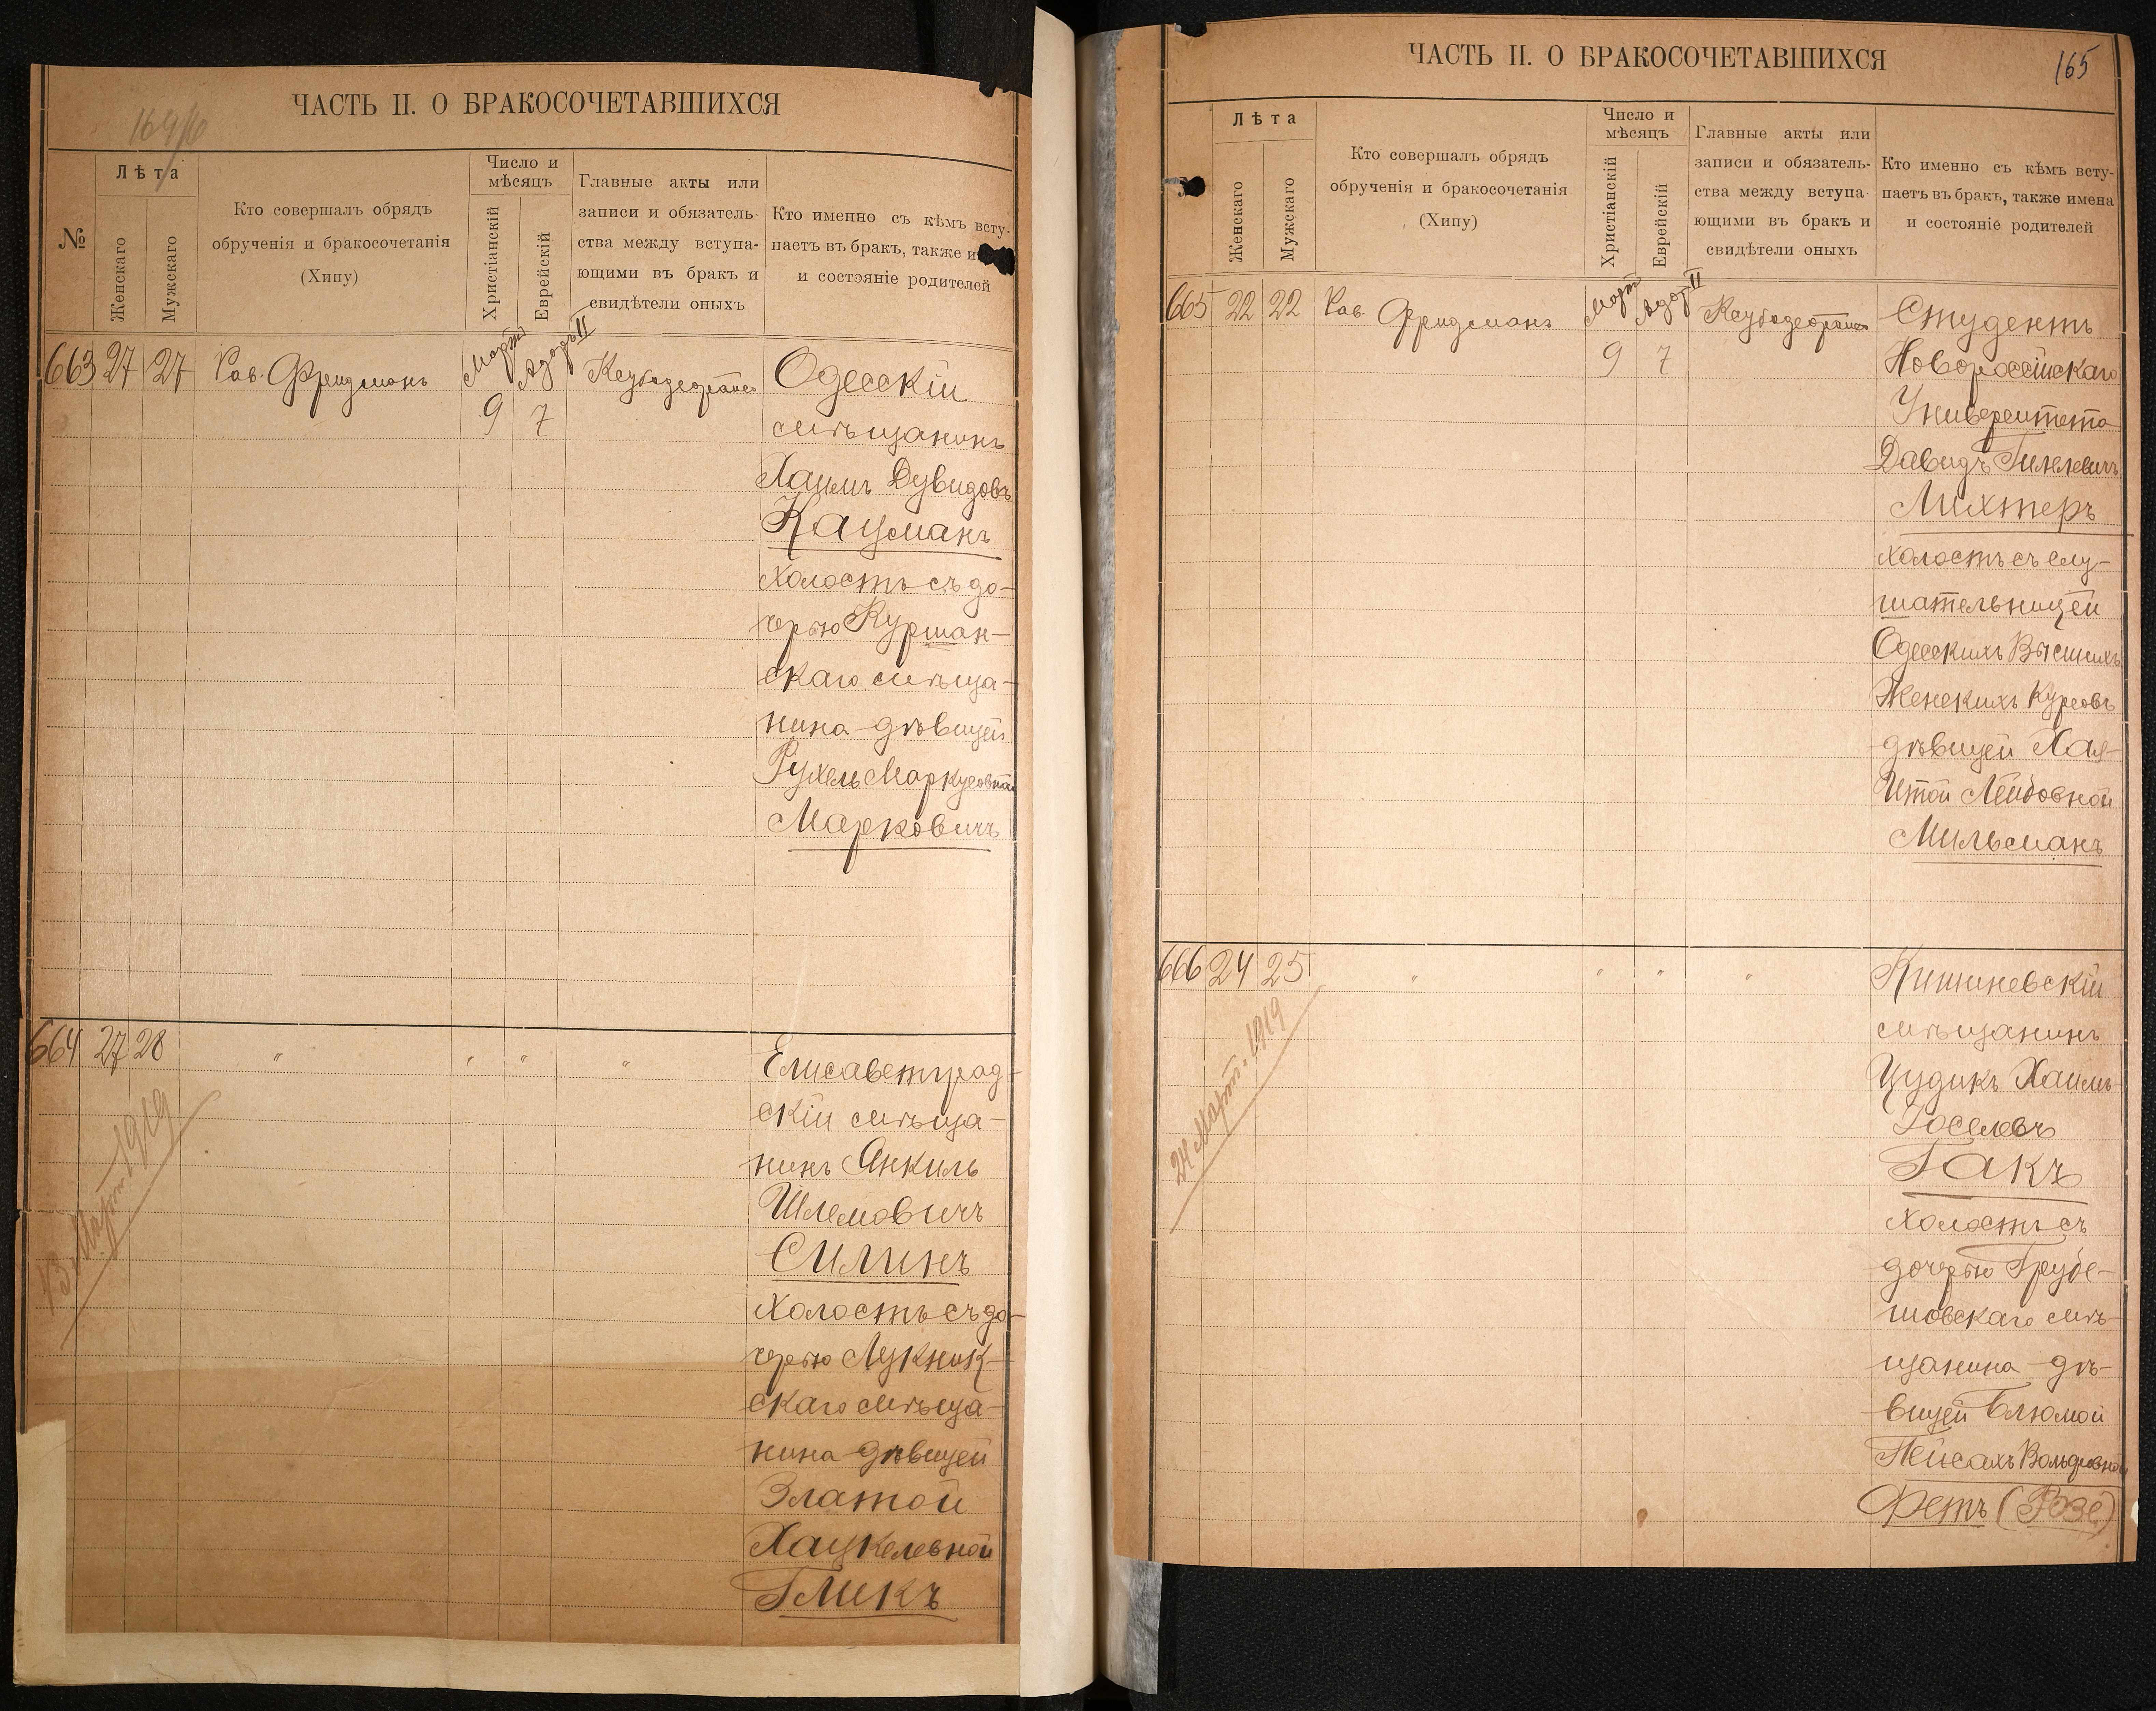 ЧАСТЬ II. О БРАКОСОЧЕТАВШИХСЯ
№
Лѣта
Женскаго
Мужскаго
Кто совершалъ обрядъ
обрученія и бракосочетанія
(Хипу)
Число и
мѣсяцъ
Христіанскій
Еврейскій
Главные акты или
записи и обязатель-
ства между вступа-
ющими въ бракъ и
свидѣтели оныхъ
Кто именно съ кѣмъ всту-
паетъ въ бракъ, также и
и состэяніе родителей
663 27 27 Рав. Фридманъ Мартъ Адаръ II
9 7
Одесскій
мѣщанинъ
Хаимъ Дувидовъ
Кауманъ
холостъ съ до-
черью Куршан-
скаго мѣща-
нина дѣвицей
Рухель Маркусовной
Марковичъ
664 27 28 " " " "
13 Март 1919
Елисаветград-
скій мѣща-
нинъ Янкиль
Шлемовичъ
Силинъ
холостъ съ до-
черью Лукник-
скаго мѣща-
нина дѣвицей
Златой
Хацкелевной
Гликъ
ЧАСТЬ II. О БРАКОСОЧЕТАВШИХСЯ
165
Лѣта
Женскаго
Мужскаго
Кто совершалъ обрядъ
обрученія и бракосочетанія
(Хипу)
Число и
мѣсяцъ
Христіанскій
Еврейскій
Главные акты или
записи и обязатель-
ства между вступа-
ющими въ бракъ и
свидѣтели оныхъ
Кто именно съ кѣмъ всту-
паетъ въ бракъ, также имена
и состояніе родителей
665 22 22 Рав. Фридманъ Мартъ Адаръ II
9 7
Студентъ
Новороссійскаго
Университета
Давидъ Гилелевичъ
Лихтеръ
холостъ съ слу-
шательницей
Одесскихъ Высшихъ
Женскихъ Курсовъ
дѣвицей Хая-
Итой Лейбовной
Мильманъ
666 24 25 " " " "
24 Март. 1919
Кишиневскій
мѣщанинъ
Цудикъ Хаимъ-
Іоселевъ
Гакъ
холостъ съ
дочерью Грубе-
шовскаго мѣ-
щанина дѣ-
вицей Блюмой
Пейсахъ Вольфовной
Фетъ (Розе)